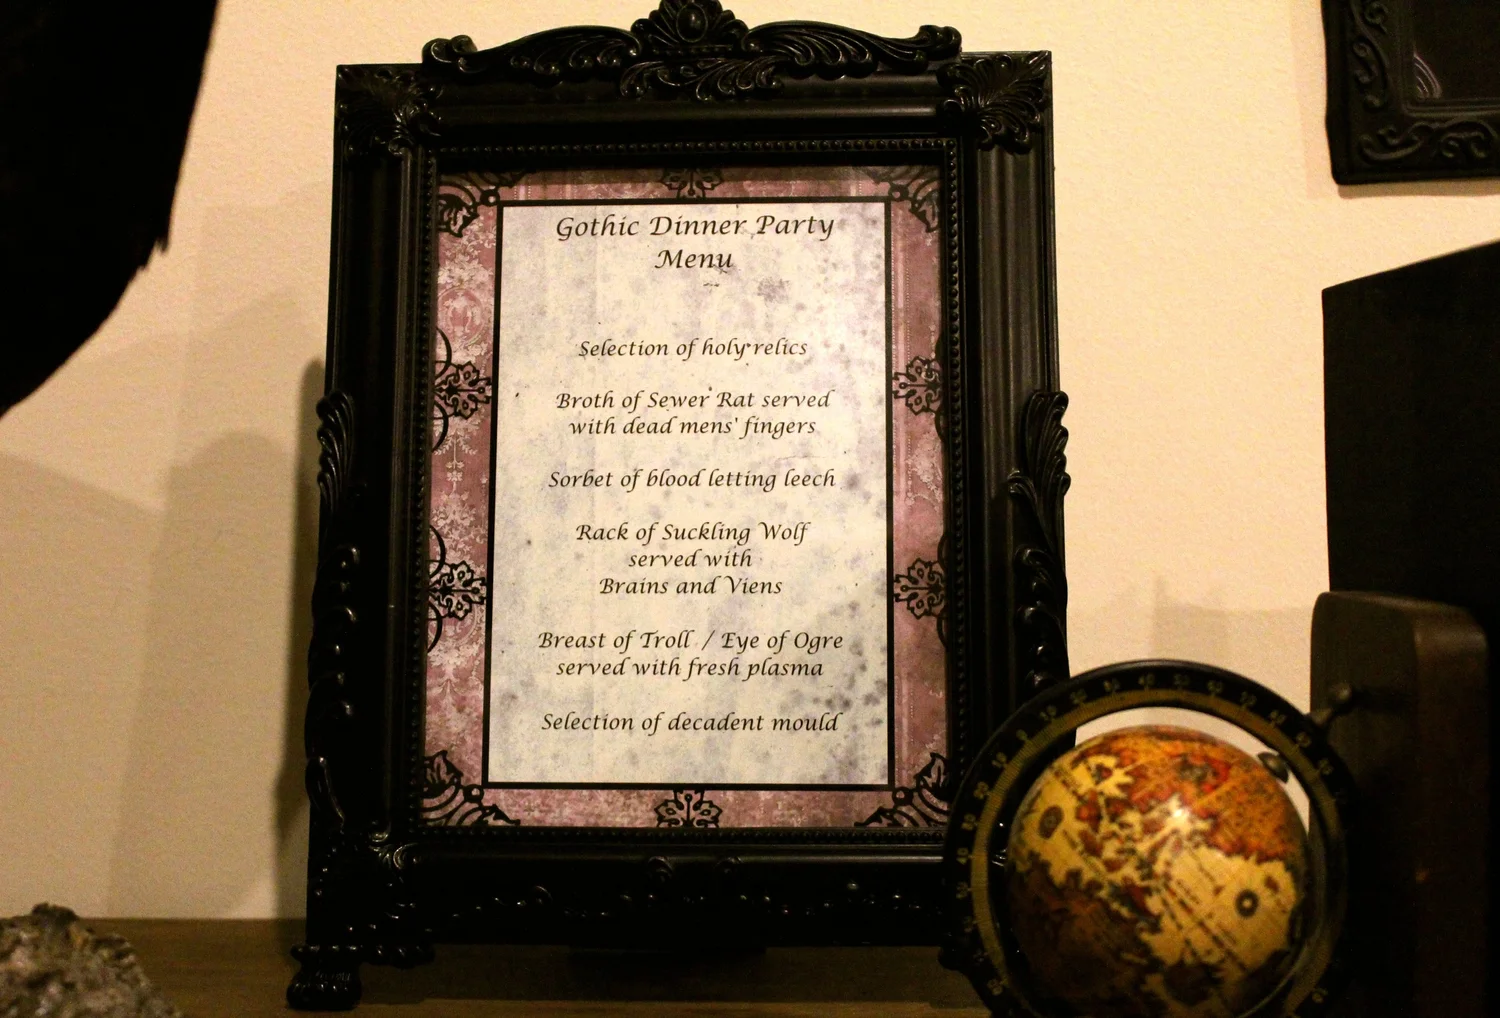 Gothic Dinner Party
Menu
Selection of holy relics
Broth of Sewer Rat served
with dead mens' fingers
Sorbet of blood letting leech
Rack of Suckling Wolf
served with
Brains and Viens
Breast of Troll / Eye of Ogre
served with fresh plasma
Selection of decadent mould